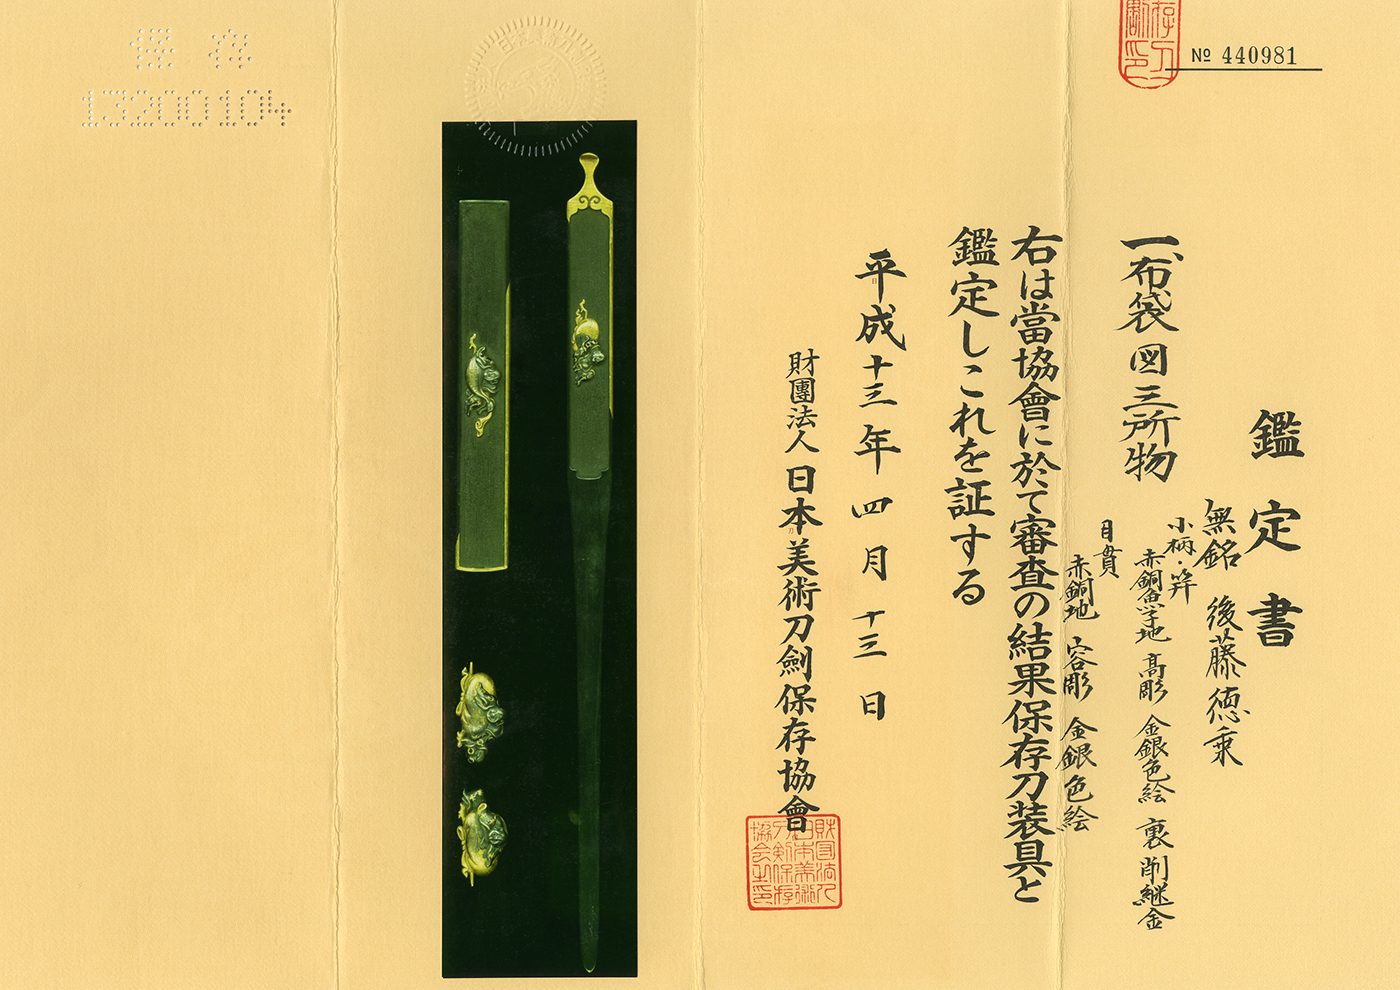 No 440981
鑑定書
一、布袋図三所物
無銘 後藤徳乗
小柄・笄
赤銅魚子地 高彫 金銀色絵 裏削継金
目貫
赤銅地 容彫 金銀色絵
右は當協會に於て審査の結果保存刀装具と
鑑定しこれを証する
平成十三年四月十三日
財團法人 日本美術刀劍保存協會
財団法人日本美術刀剣保存協会之印
保存
13200104